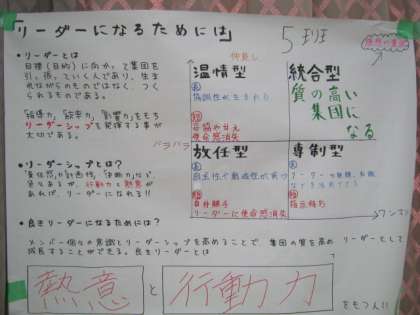 「リーダーになるためには」
5班
●リーダーとは
目標(目的)に向かって集団を
引っ張っていく人であり、生ま
れながらのものではなく、つく
られるものである。
「指導力」「統率力」「影響力」をもち
リーダーシップを発揮する事が
大切である。
●リーダーシップとは?
「責任感」「計画性」「決断力」など
色々あるが、行動力と熱意が
あれば、リーダーになれる!!
仲良し
温情型
協調性が生まれる
使命感消失
統合型
質の高い
集団に
なる
バラバラ
放任型
自主性や創造性が育つ
自分勝手
リーダーに使命感消失
専制型
指示待ち
ワンマン
●良きリーダーになるためには?
メンバー個々の意識とリーダーシップを高めることで 集団の質を高め リーダーとして
成長することができる。良きリーダーとは
熱意 と 行動力 をもつ人!!